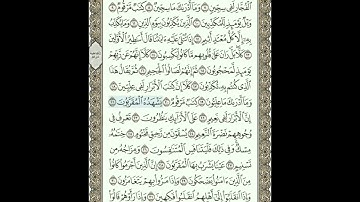 ٱلْفُجَّارِ لَفِي سِجِّينٍ ٧ وَمَآ أَدْرَىٰكَ مَا سِجِّينٌ ٨ كِتَٰبٌ مَّرْقُومٌ ٩
وَيْلٌ يَوْمَئِذٍ لِّلْمُكَذِّبِينَ ١٠ ٱلَّذِينَ يُكَذِّبُونَ بِيَوْمِ ٱلدِّينِ ١١ وَمَا يُكَذِّبُ
بِهِۦٓ إِلَّا كُلُّ مُعْتَدٍ أَثِيمٍ ١٢ إِذَا تُتْلَىٰ عَلَيْهِ ءَايَٰتُنَا قَالَ أَسَٰطِيرُ ٱلْأَوَّلِينَ
١٣ كَلَّا بَلْ رَانَ عَلَىٰ قُلُوبِهِم مَّا كَانُوا۟ يَكْسِبُونَ ١٤ كَلَّآ إِنَّهُمْ عَن رَّبِّهِمْ
يَوْمَئِذٍ لَّمَحْجُوبُونَ ١٥ ثُمَّ إِنَّهُمْ لَصَالُوا۟ ٱلْجَحِيمِ ١٦ ثُمَّ يُقَالُ هَٰذَا
ٱلَّذِي كُنتُم بِهِۦ تُكَذِّبُونَ ١٧ كَلَّآ إِنَّ كِتَٰبَ ٱلْأَبْرَارِ لَفِي عِلِّيِّينَ ١٨
وَمَآ أَدْرَىٰكَ مَا عِلِّيُّونَ ١٩ كِتَٰبٌ مَّرْقُومٌ ٢٠ يَشْهَدُهُ ٱلْمُقَرَّبُونَ ٢١
إِنَّ ٱلْأَبْرَارَ لَفِي نَعِيمٍ ٢٢ عَلَى ٱلْأَرَآئِكِ يَنظُرُونَ ٢٣ تَعْرِفُ فِي
وُجُوهِهِمْ نَضْرَةَ ٱلنَّعِيمِ ٢٤ يُسْقَوْنَ مِن رَّحِيقٍ مَّخْتُومٍ ٢٥ خِتَٰمُهُۥ
مِسْكٌ وَفِي ذَٰلِكَ فَلْيَتَنَافَسِ ٱلْمُتَنَٰفِسُونَ ٢٦ وَمِزَاجُهُۥ مِن
تَسْنِيمٍ ٢٧ عَيْنًا يَشْرَبُ بِهَا ٱلْمُقَرَّبُونَ ٢٨ إِنَّ ٱلَّذِينَ أَجْرَمُوا۟ كَانُوا۟
مِنَ ٱلَّذِينَ ءَامَنُوا۟ يَضْحَكُونَ ٢٩ وَإِذَا مَرُّوا۟ بِهِمْ يَتَغَامَزُونَ ٣٠
وَإِذَا ٱنقَلَبُوٓا۟ إِلَىٰٓ أَهْلِهِمُ ٱنقَلَبُوا۟ فَكِهِينَ ٣١ وَإِذَا رَأَوْهُمْ قَالُوٓا۟